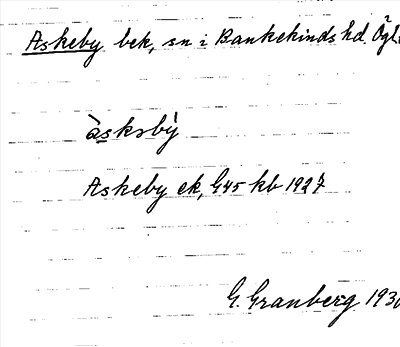 Askeby bek, sn i Bankekinds hd. Ögl.
àsksbỳ
Askeby ek, G45 kb 1927
G. Granberg 193